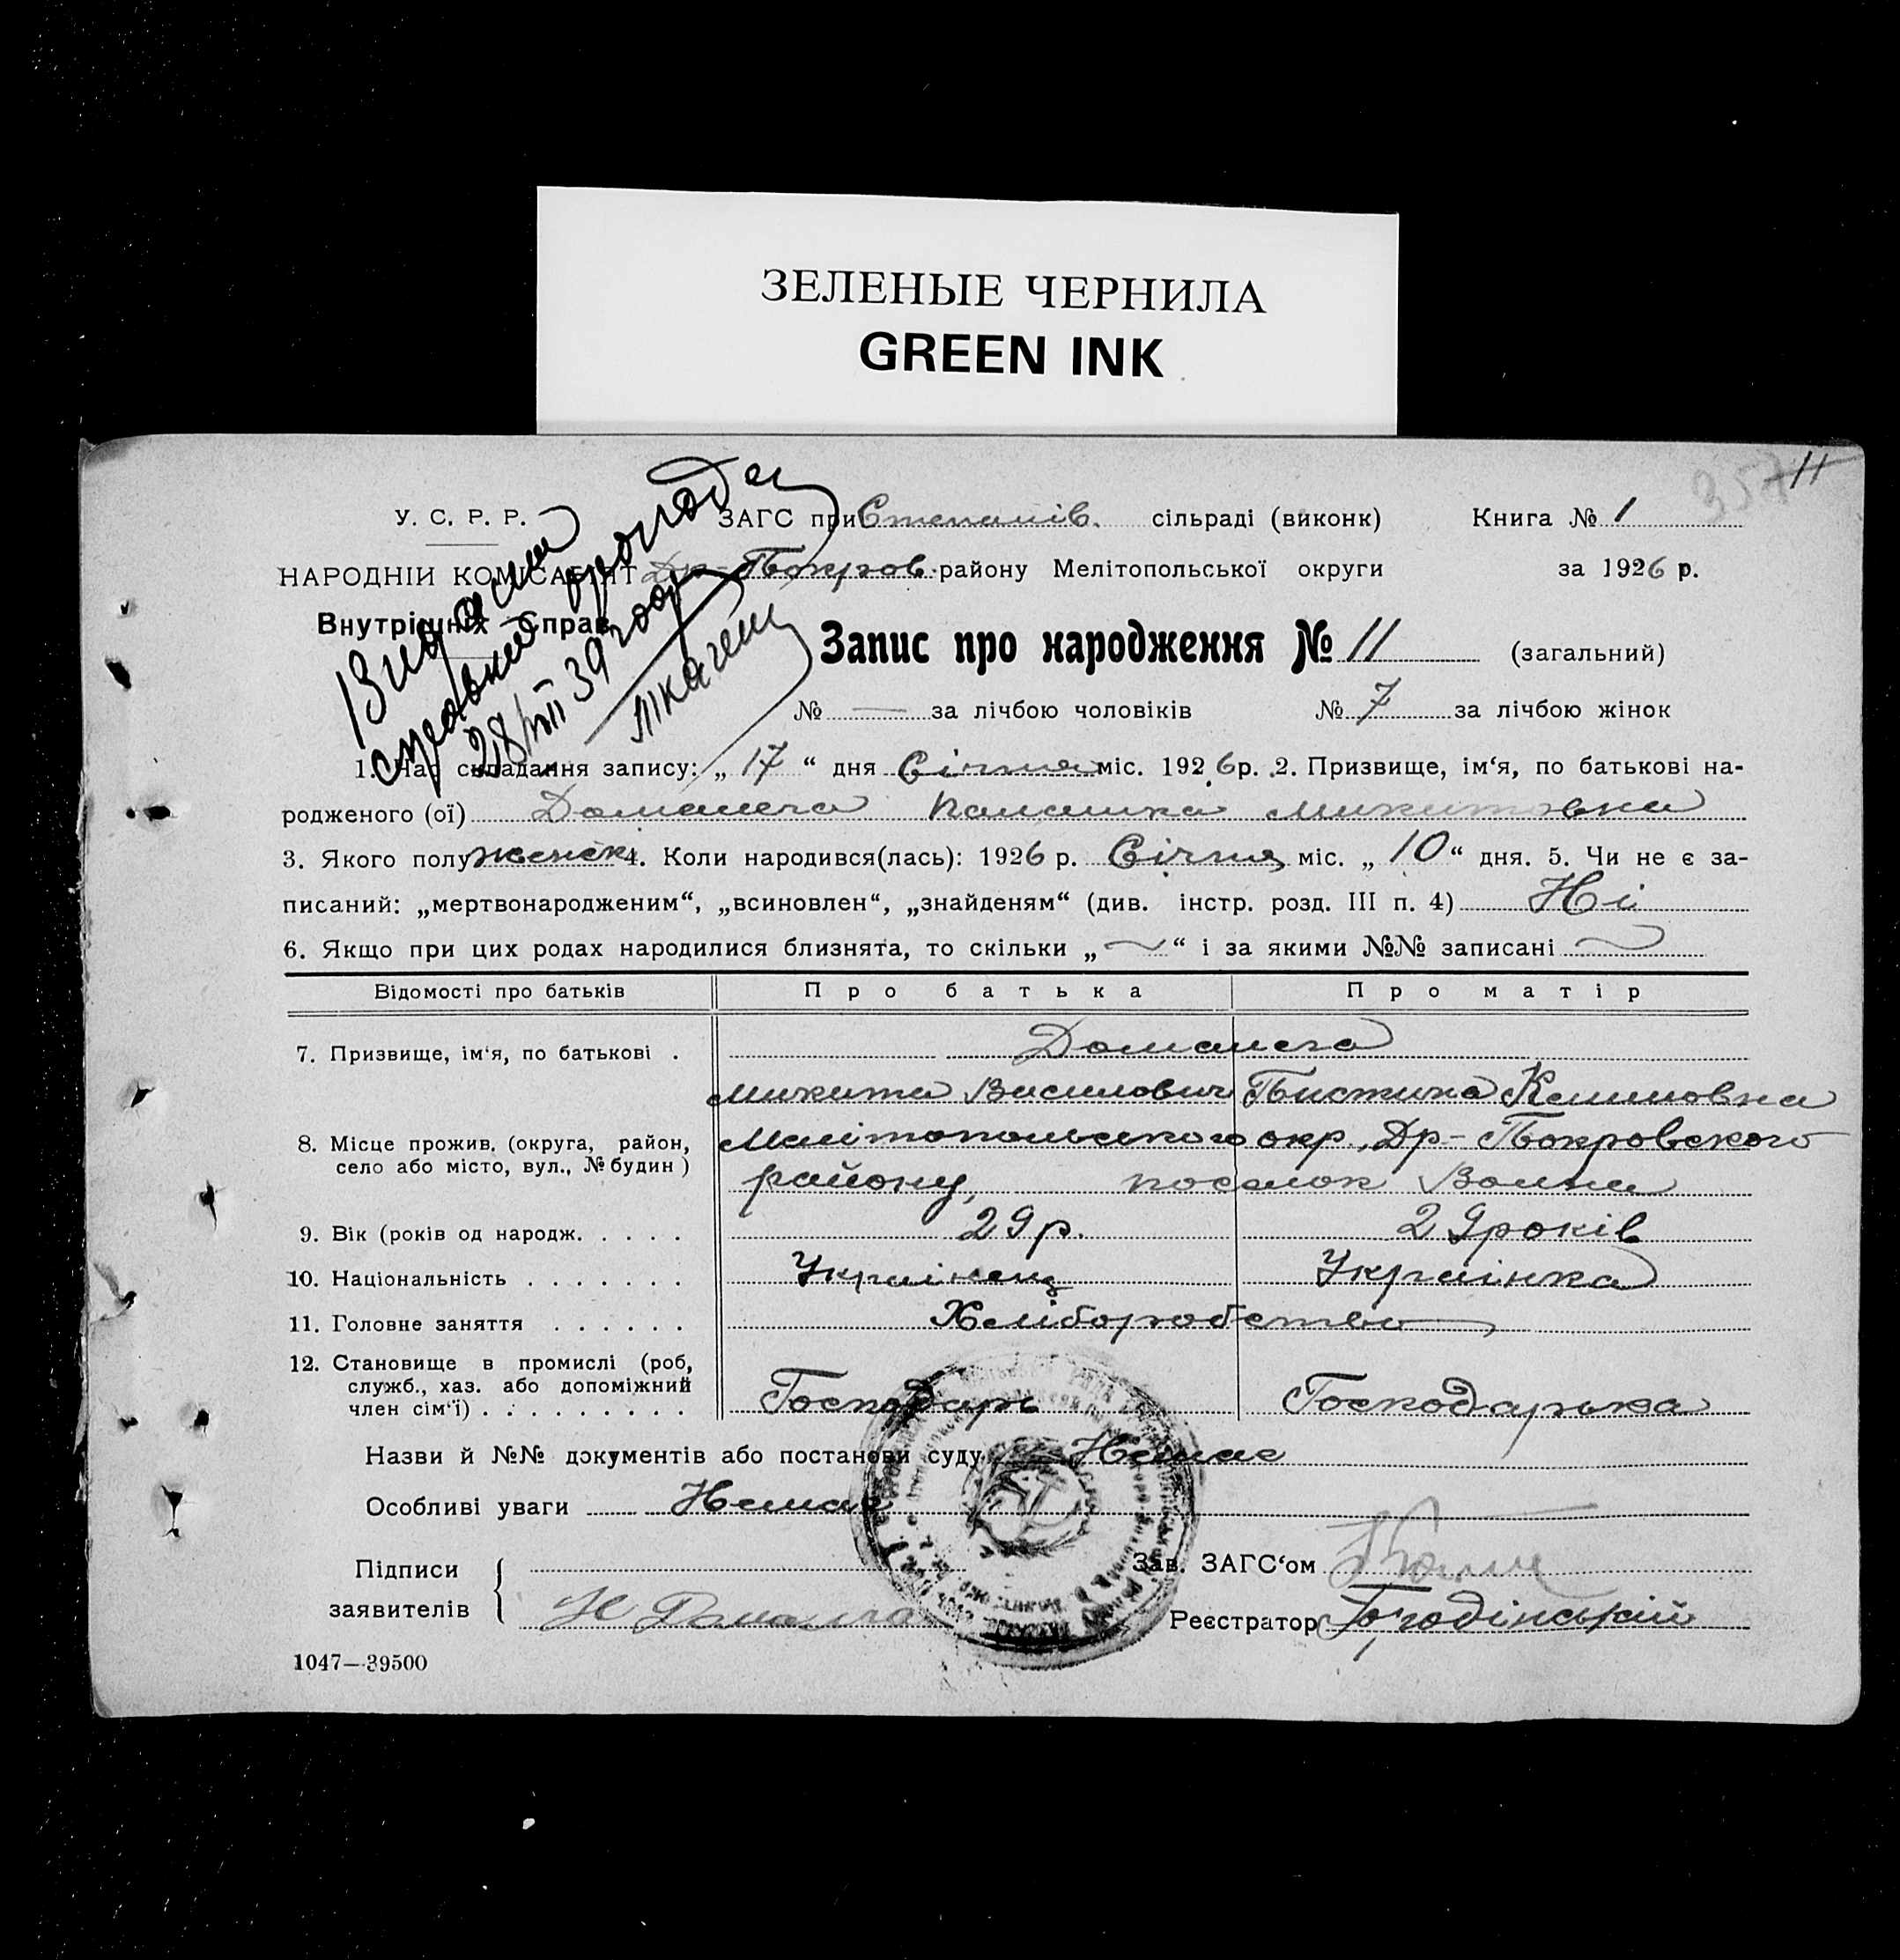 ЗЕЛЕНЫЕ ЧЕРНИЛА
GREEN INK
11
357
У. С. Р. Р.
ЗАГС при Степанів. сільраді (виконк) Книга № 1
НАРОДНІЙ КОМІСАРІЯТ Др-Покров. району Мелітопольської округи за 1926 р.
Внутрішніх Справ
28/VIII 39 году
Ткаченко
Запис про народження № 11 (загальний)
№ — за лічбою чоловіків № 7 за лічбою жінок
1. Час складання запису: „ 17 “ дня Січня міс. 1926 р. 2. Призвище, ім‘я, по батькові на-
родженого (ої) Домашега Микитовна
3. Якого полу женск 4. Коли народився(лась): 1926 р. Січня міс. „ 10 “ дня. 5. Чи не є за-
писаний: „мертвонародженим“, „всиновлен“, „знайденям“ (див. інстр. розд. III п. 4) Ні
6. Якщо при цих родах народилися близнята, то скільки „ — “ і за якими №№ записані —
Відомості про батьків Про батька Про матір
7. Призвище, ім‘я, по батькові . Домашега
Микита Василович
8. Місце прожив. (округа, район, Мелітопольського окр, Др-Покровского
село або місто, вул., № будин) району, поселок Волна
9. Вік (років од народж. . . . . 29 р. 29 років
10. Національність . . . . . . . Украінець Украінка
11. Головне заняття . . . . . . Хліборобство
12. Становище в промислі (роб, служб., хаз. або допоміжний член сім‘ї) . . . . . . . . . Господарь Господарька
Назви й №№ документів або постанови суду Немає
Особливі уваги Немає
Підписи заявителів
Зав. ЗАГС‘ом
Реєстратор
1047—39500